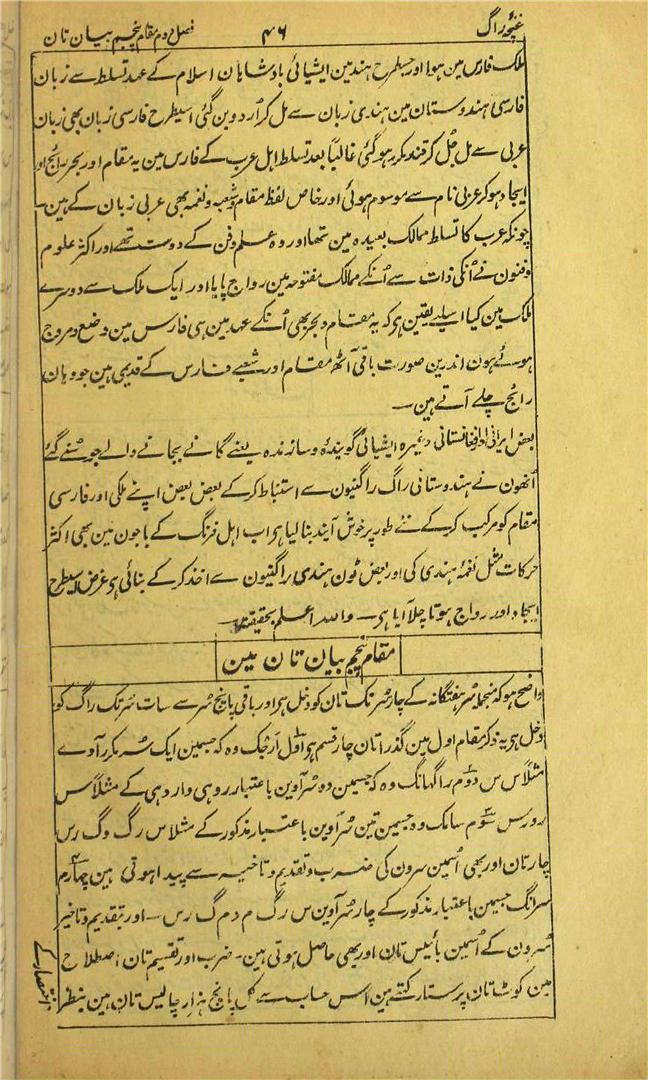 غنچۂ راگ ۴۶ فصل دوم مقام پنجم بیان تان
ملک فارس مین ہوا اور جسطرح ہند مین ایشیائی بادشاہان اسلام کے عہد تسلط سے زبان
فارسی ہندوستان مین ہندی زبان سے مل کر اُردو بن گئی اسیطرح فارسی زبان بھی زبان
عربی سے مل جُل کر قند مکرر ہوگئی غالباً بعد تسلط اہل عرب کے فارس مین یہ مقام اور بحر رائج او
ایجاد ہوکر عربی نام سے موسوم ہوئی اور خاص لفظ مقام و شعبہ و نغمہ بھی عربی زبان کے ہین۔
چونکہ عرب کا تسلط ممالک بعیدہ مین تھا اور وہ علم و فن کے دوست تھے اور اکثر علوم
و فنون نے اُنکی ذات سے اُنکے ممالک مفتوحہ مین رواج پایا اور ایک ملک سے دوسرے
ملک مین گیا اسلیے یقین ہی کہ یہ مقام و بحر بھی اُنکے عہد مین ہی فارس مین وضع و مروج
ہوئے ہون اندرین صورت باقی آٹھ مقام اور شعبے فارس کے قدیمی ہین جو وہان
رائج چلے آتے ہین۔
بعض ایرانی اور افغانستانی وغیرہ ایشیائی گویندہ و سازندہ یعنے گانے بجانے والے جو سُنے گئے
اُنھون نے ہندوستانی راگ راگنیون سے استنباط کرکے بعض بعض اپنے ملکی اور فارسی
مقام کو مرکب کرکے نئے طور پر خوش آیند بنا لیا ہی اب اہل فرنگ کے باجون مین بھی اکثر
حرکات مثل نغمۂ ہندی کی اور بعض ٹون ہندی راگنیون سے اخذ کرکے بنائی ہی غرض اسیطرح
ایجاد اور رواج ہوتا چلا آیا ہی۔ واللہ اعلم بحقیقتہ۔
مقام پنجم بیان تان مین
واضح ہو کہ منجملہ سُر ہفتگانہ کے چار سُر تک تان کو دخل ہی اور باقی پانچ سُر سے سات سُر تک راگ کو
دخل ہی یہ ذکر مقام اول مین گذرا تان چار قسم ہی اول اَرچک وہ کہ جسمین ایک سُر مکرر آوے
مثلاً س س دوم راگھانگ وہ کہ جسمین دو سُر آوین باعتبار روہی وار دہی کے مثلاً س
ر و ر س سوم سامک وہ جسمین تین سُر آوین باعتبار مذکور کے مثلاً س ر گ و گ ر س
چار تان اور بھی اُسمین سرون کی ضرب و تقدیم و تاخیر سے پیدا ہوتی ہین چہارم
سرانگ جسمین باعتبار مذکور کے چار سُر آوین س ر گ م و م گ ر س۔ اور بتقدیم و تاخیر
سُرون کے اُسمین بائیس تان اور بھی حاصل ہوتی ہین۔ ضرب اور تقسیم تان اصطلاح
مین کوٹ تان پرستار کہتے ہین اس حساب سے کل پانچ ہزار چالیس تان ہین بنظر
اختصار کے